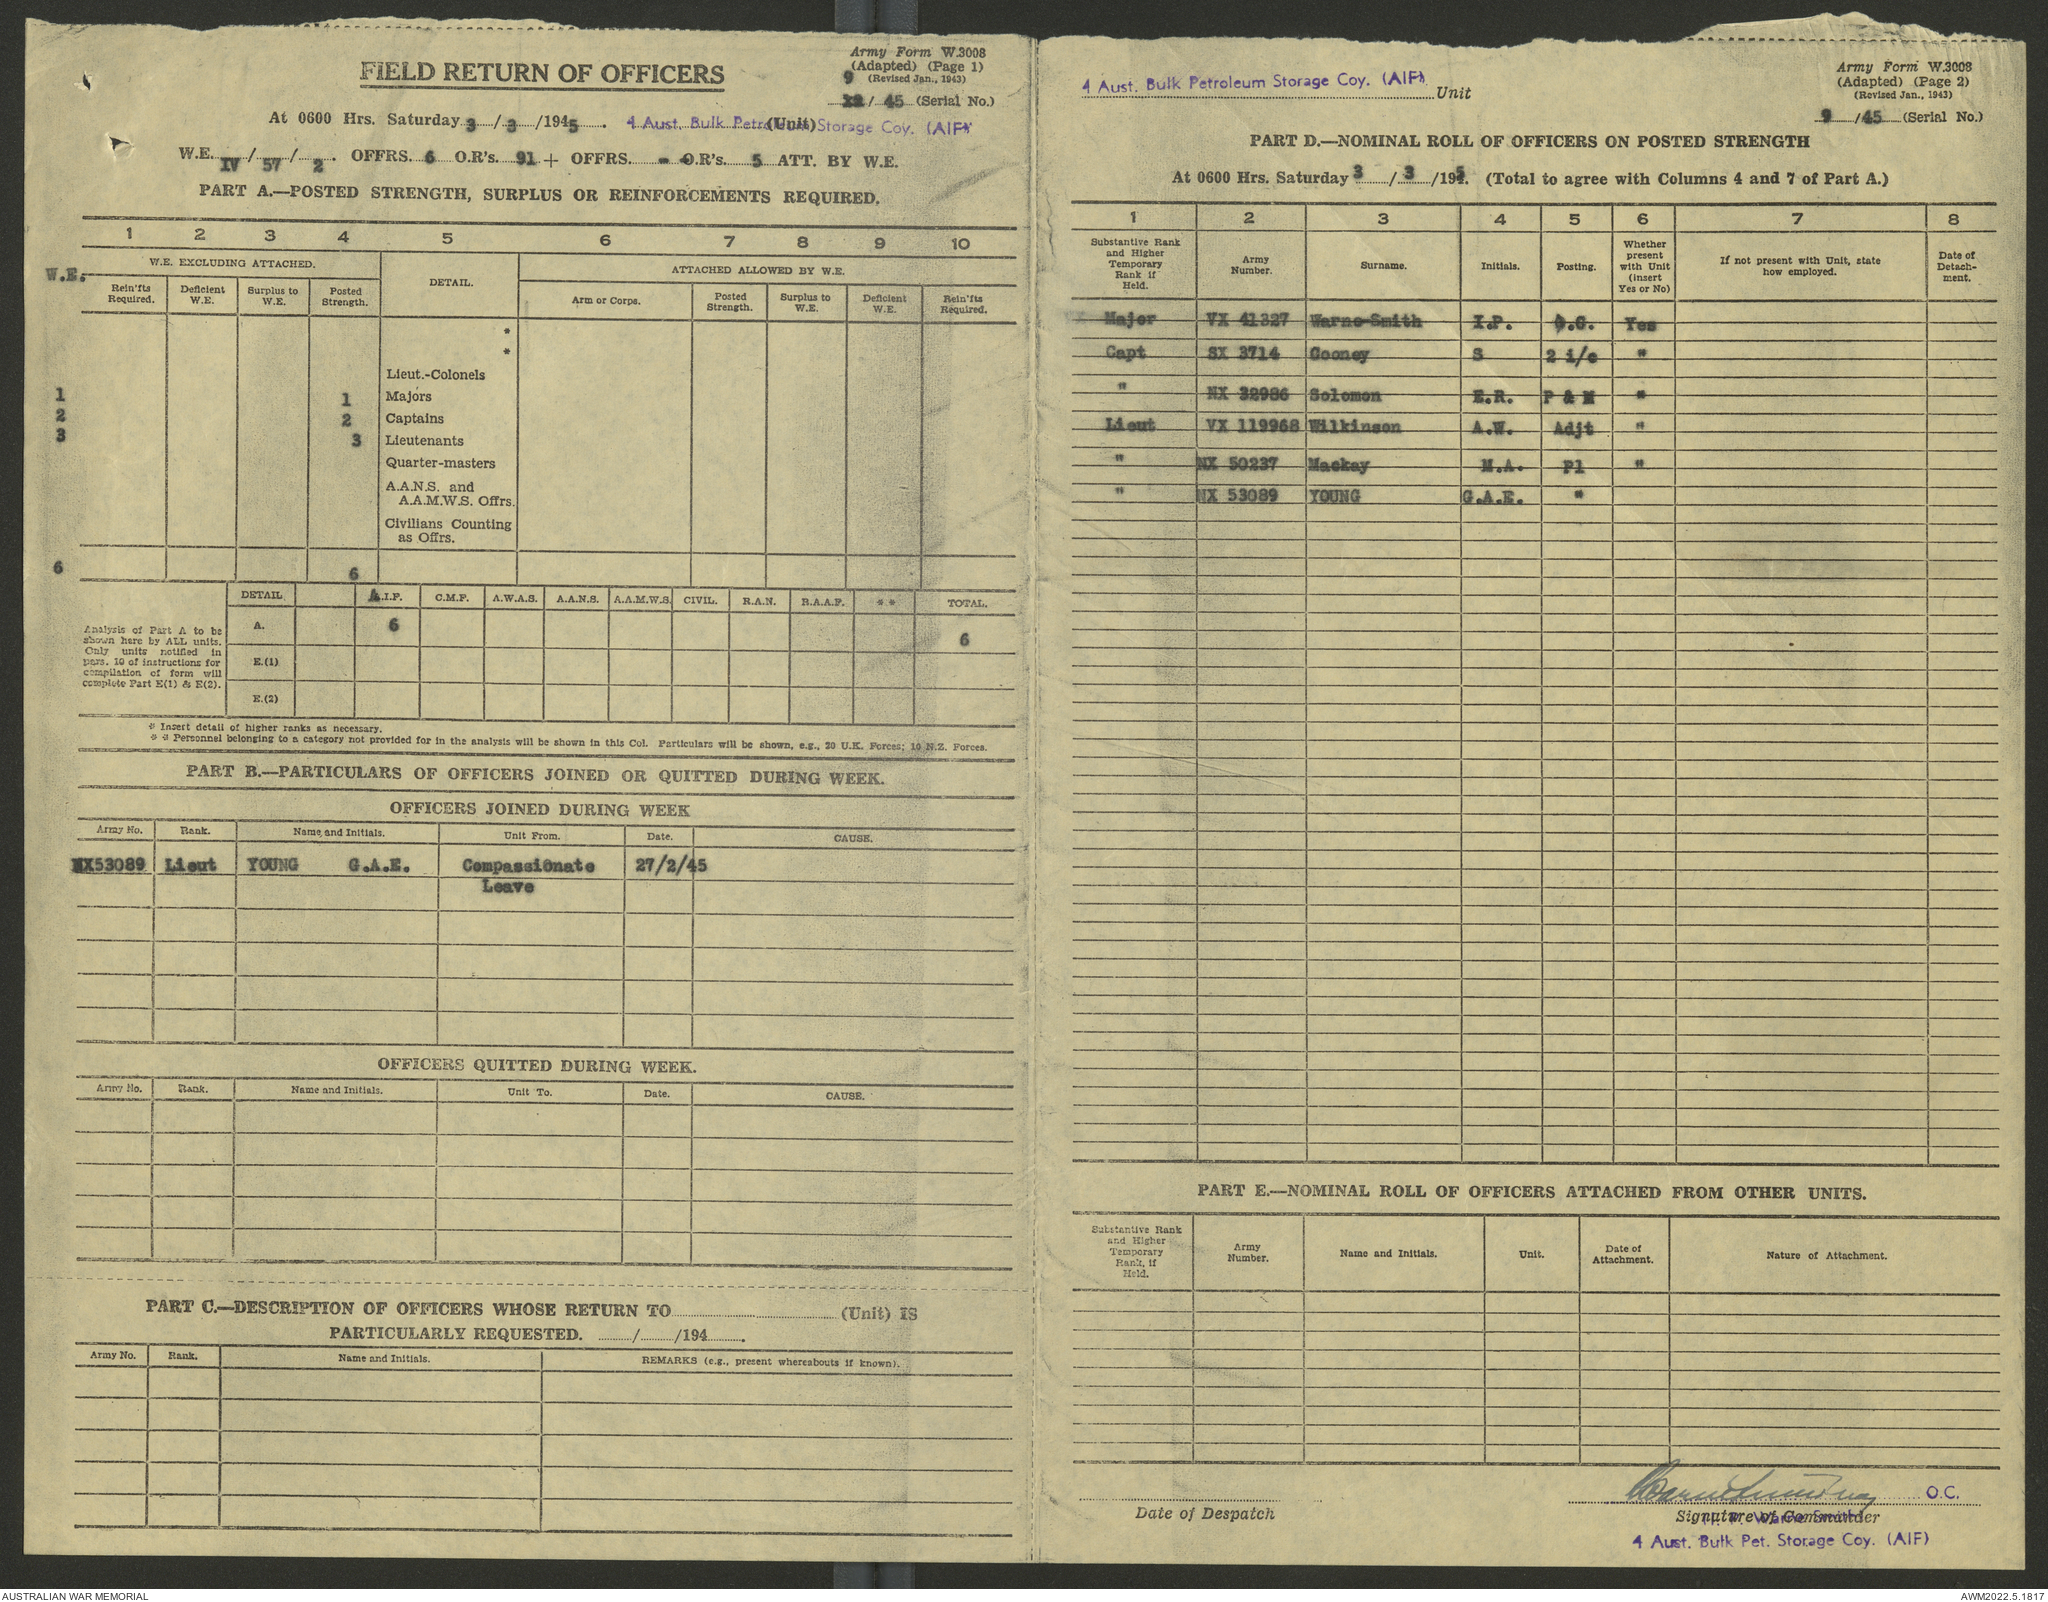 Army Form W.3008
(Adapted) (Page 1)
(Revised Jan., 1943)
FIELD RETURN OF OFFICERS
9
/ 45 (Serial No.)
At 0600 Hrs. Saturday 3 / 3 / 1945. 4 Aust. Bulk Petroleum Storage Coy. (AIF) (Unit)
W.E. IV / 57 / 2. OFFRS. 6 O.R's. 91 + OFFRS. - O.R's. 5 ATT. BY W.E.
PART A.—POSTED STRENGTH, SURPLUS OR REINFORCEMENTS REQUIRED.
1 2 3 4 5 6 7 8 9 10
W.E.
W.E. EXCLUDING ATTACHED. DETAIL. ATTACHED ALLOWED BY W.E.
Rein'fts Required. Deficient W.E. Surplus to W.E. Posted Strength. Arm or Corps. Posted Strength. Surplus to W.E. Deficient W.E. Rein'fts Required.
*
*
Lieut.-Colonels
1 1 Majors
2 2 Captains
3 3 Lieutenants
Quarter-masters
A.A.N.S. and
A.A.M.W.S. Offrs.
Civilians Counting
as Offrs.
6 6
DETAIL A.I.F. C.M.F. A.W.A.S. A.A.N.S. A.A.M.W.S. CIVIL. R.A.N. R.A.A.F. ** TOTAL.
Analysis of Part A to be
shown here by ALL units.
Only units notified in
para. 10 of instructions for
compilation of form will
complete Part E(1) & E(2).
A. 6 6
E.(1)
E.(2)
* Insert detail of higher ranks as necessary.
* * Personnel belonging to a category not provided for in the analysis will be shown in this Col. Particulars will be shown, e.g., 20 U.K. Forces; 10 N.Z. Forces.
PART B.—PARTICULARS OF OFFICERS JOINED OR QUITTED DURING WEEK.
OFFICERS JOINED DURING WEEK
Army No. Rank. Name and Initials. Unit From. Date. CAUSE.
NX53089 Lieut YOUNG G.A.E. Compassionate 27/2/45
Leave
OFFICERS QUITTED DURING WEEK.
Army No. Rank. Name and Initials. Unit To. Date. CAUSE.
PART C.—DESCRIPTION OF OFFICERS WHOSE RETURN TO (Unit) IS
PARTICULARLY REQUESTED. / /194 .
Army No. Rank. Name and Initials. REMARKS (e.g., present whereabouts if known).
Army Form W.3008
(Adapted) (Page 2)
(Revised Jan., 1943)
4 Aust. Bulk Petroleum Storage Coy. (AIF) Unit
9 /45 (Serial No.)
PART D.—NOMINAL ROLL OF OFFICERS ON POSTED STRENGTH
At 0600 Hrs. Saturday 3 / 3 /1945. (Total to agree with Columns 4 and 7 of Part A.)
1 2 3 4 5 6 7 8
Substantive Rank and Higher Temporary Rank if Held. Army Number. Surname. Initials. Posting. Whether present with Unit (insert Yes or No) If not present with Unit, state how employed. Date of Detachment.
Major VX 41327 Warne-Smith I.P. O.C. Yes
Capt SX 3714 Cooney S 2 i/c "
" NX 32986 Solomon E.R. P & M "
Lieut VX 119968 Wilkinson A.W. Adjt "
" NX 50237 Mackay M.A. Pl "
" NX 53089 YOUNG G.A.E. "
PART E.—NOMINAL ROLL OF OFFICERS ATTACHED FROM OTHER UNITS.
Substantive Rank and Higher Temporary Rank, if Held. Army Number. Name and Initials. Unit. Date of Attachment. Nature of Attachment.
O.C.
Date of Despatch Signature of Commander
4 Aust. Bulk Pet. Storage Coy. (AIF)
AUSTRALIAN WAR MEMORIAL AWM2022.5.1817